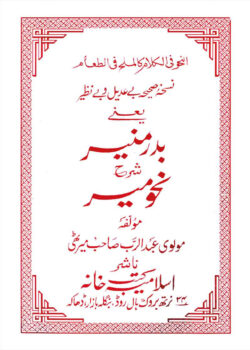 النحو فی الکلام کالملح فی الطعام
نسخہ صحیحہ بے عدیل و بے نظیر
یعنے
بدر منیر
شرح
نحو میر
مؤلفہ
مولوی عبد الرب صاحب میرٹھی
ناشر
اسلامیہ کتب خانہ
۳۴ نرتھ بروک ہال روڈ، بنگلہ بازار ڈھاکہ